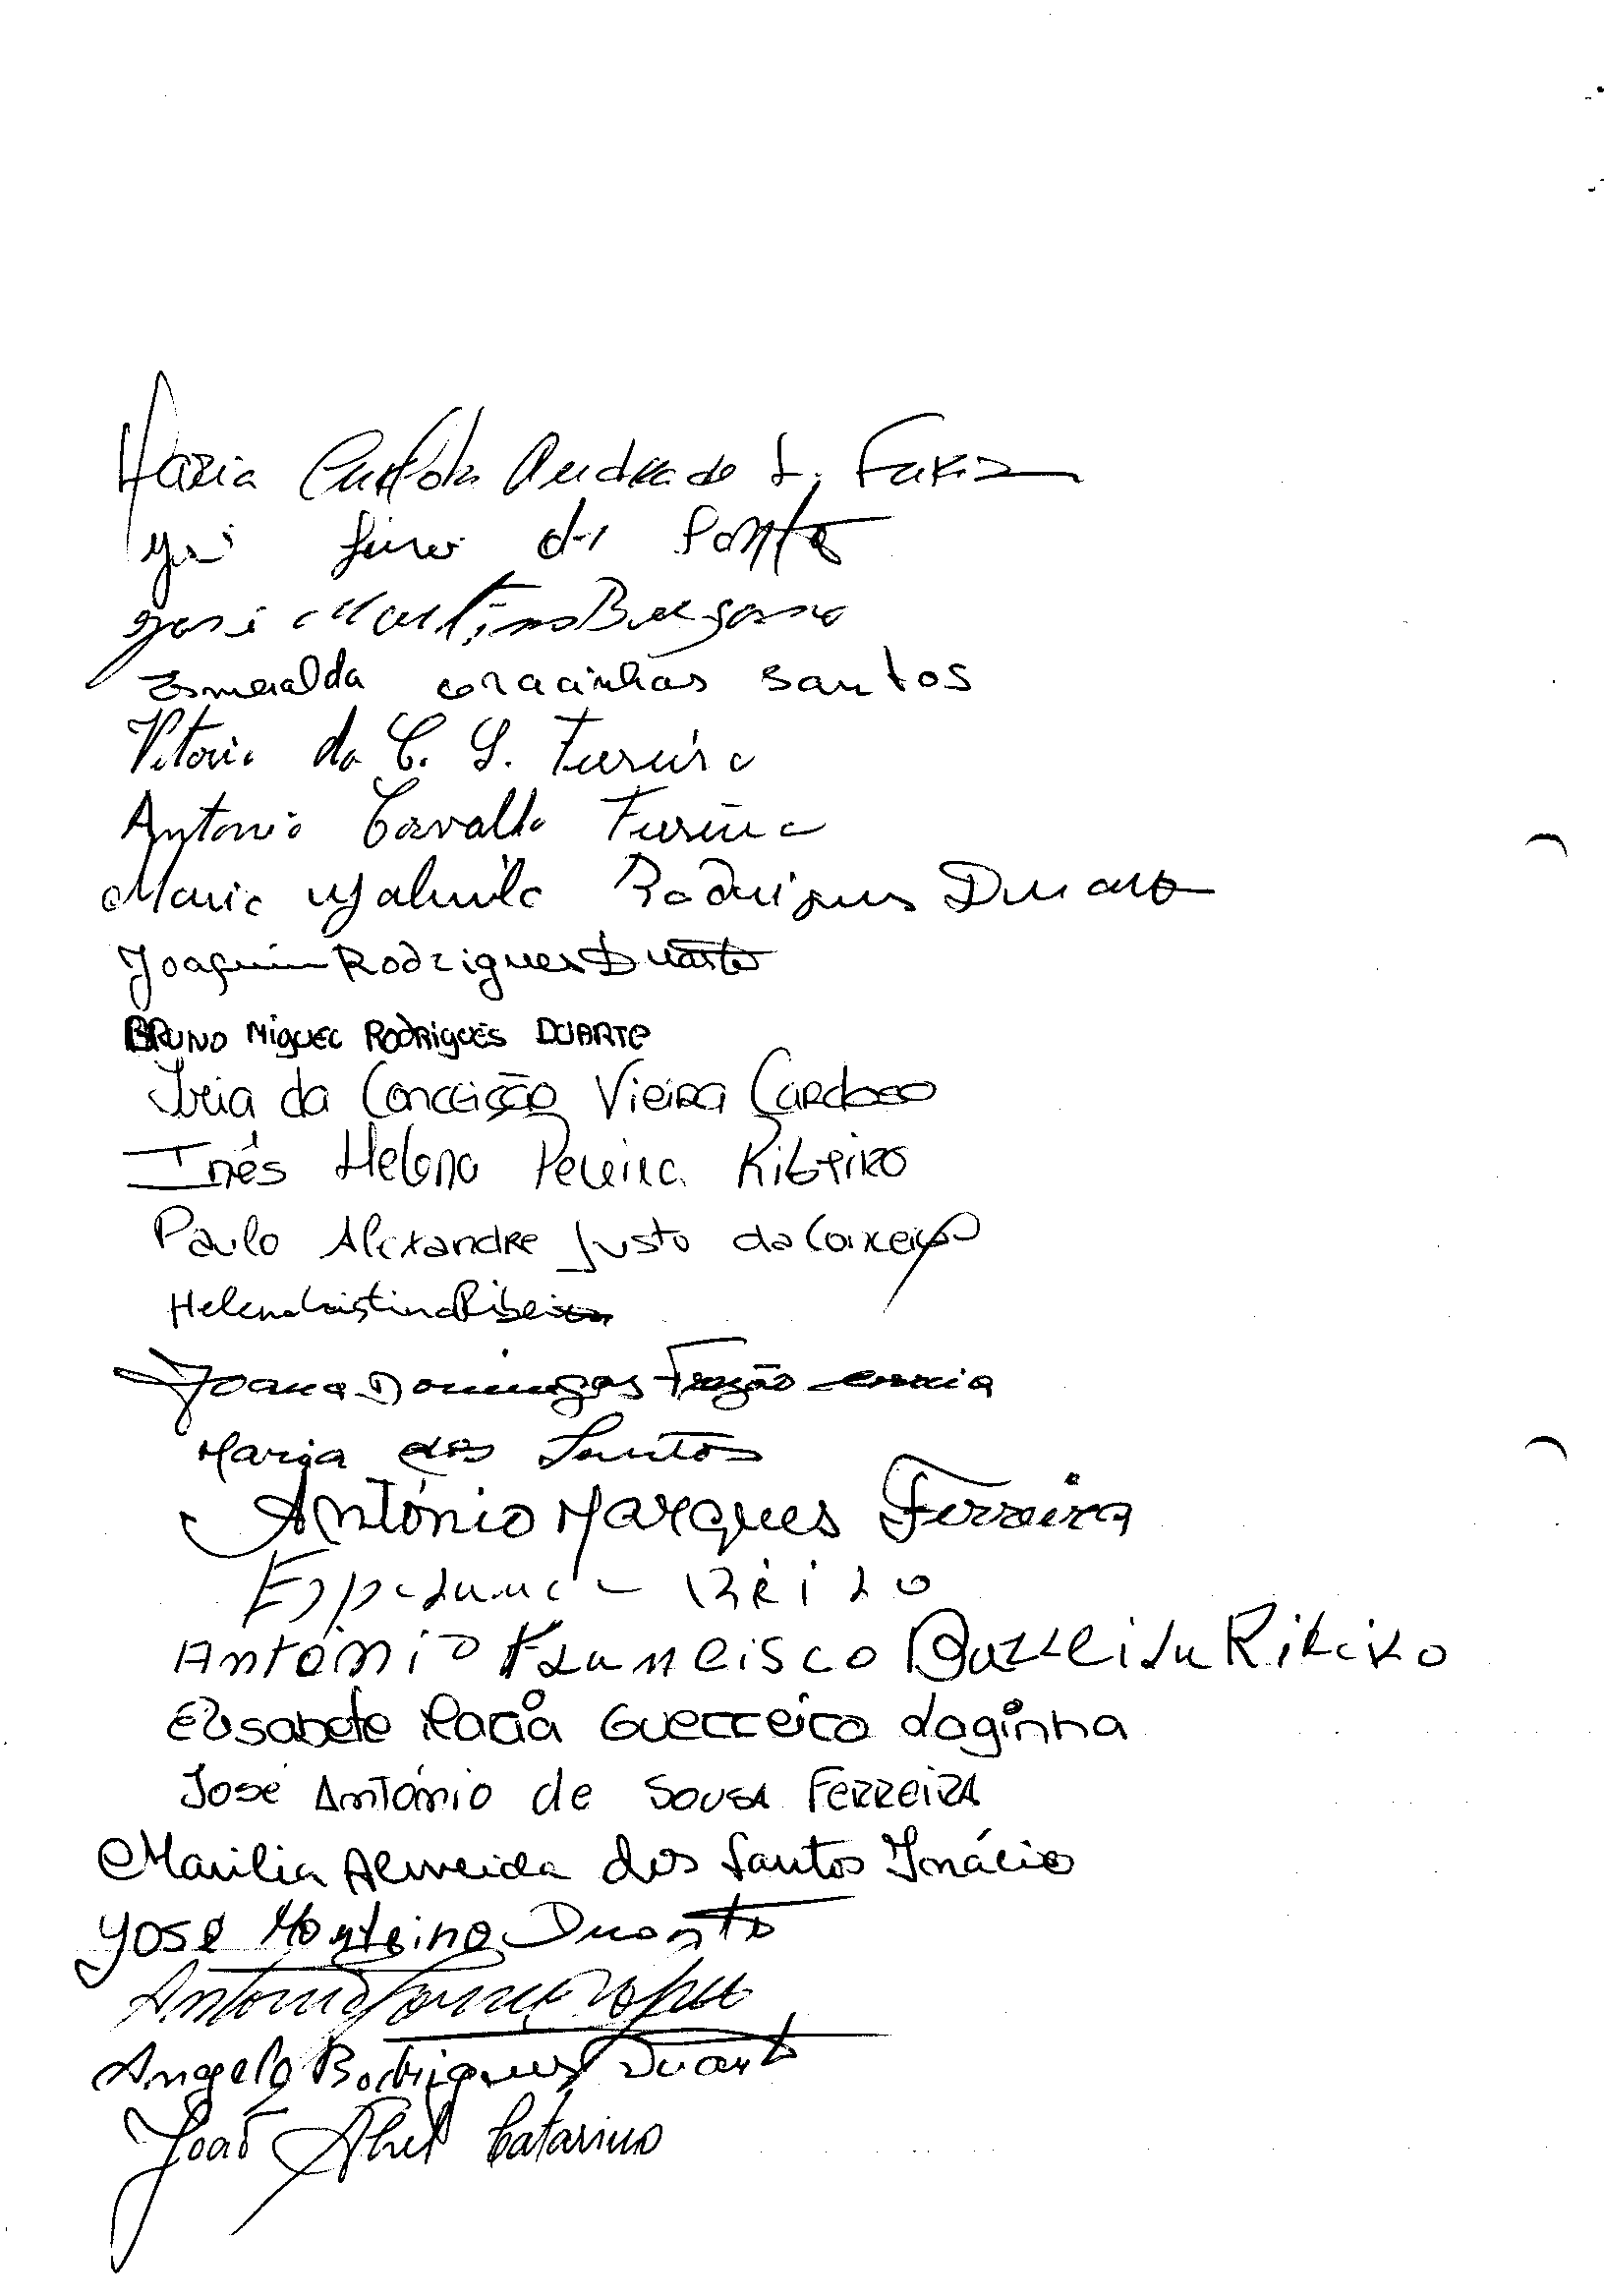 Maria Andrade L. Faria
da Ponte
José Martins
Esmeralda coracinhas santos
Vitoria da C. S. Ferreira
Antonio Carvalho Ferreira
Maria Rodrigues Duarte
Joaquim Rodrigues Duarte
BRUNO MIGUEL RODRIGUES DUARTE
da Conceição Vieira Cardoso
Inês Helena Pereira Ribeiro
Paulo Alexandre Justo da Conceição
Helena Cristina Ribeiro
Joana Domingas Frazão correia
Maria dos Santos
António Marques Ferreira
António Francisco Ribeiro
Elisabete Maria Guerreiro daginha
José António de Sousa Ferreira
Marilia Almeida dos Santos Inácio
José Monteiro Duarte
Antonio Lopes
Angelo Rodrigues Duarte
João Abel Catarino